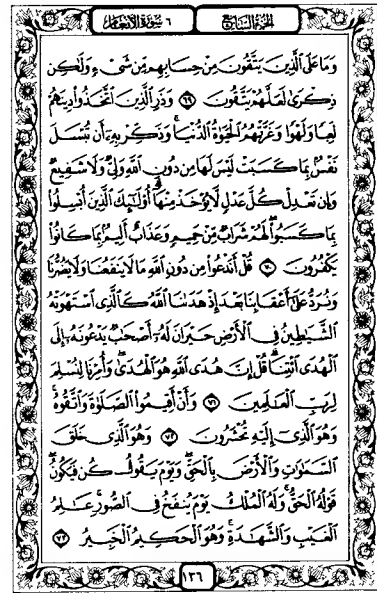 الجزء السابع ٦ سورة الأنعام
وَمَا عَلَى ٱلَّذِينَ يَتَّقُونَ مِنْ حِسَابِهِم مِّن شَىْءٍ وَلَٰكِن
ذِكْرَىٰ لَعَلَّهُمْ يَتَّقُونَ ٦٩ وَذَرِ ٱلَّذِينَ ٱتَّخَذُوا۟ دِينَهُمْ
لَعِبًا وَلَهْوًا وَغَرَّتْهُمُ ٱلْحَيَوٰةُ ٱلدُّنْيَا ۚ وَذَكِّرْ بِهِۦٓ أَن تُبْسَلَ
نَفْسٌۢ بِمَا كَسَبَتْ لَيْسَ لَهَا مِن دُونِ ٱللَّهِ وَلِىٌّ وَلَا شَفِيعٌ
وَإِن تَعْدِلْ كُلَّ عَدْلٍ لَّا يُؤْخَذْ مِنْهَآ ۗ أُو۟لَٰٓئِكَ ٱلَّذِينَ أُبْسِلُوا۟
بِمَا كَسَبُوا۟ ۖ لَهُمْ شَرَابٌ مِّنْ حَمِيمٍ وَعَذَابٌ أَلِيمٌۢ بِمَا كَانُوا۟
يَكْفُرُونَ ٧٠ قُلْ أَنَدْعُوا۟ مِن دُونِ ٱللَّهِ مَا لَا يَنفَعُنَا وَلَا يَضُرُّنَا
وَنُرَدُّ عَلَىٰٓ أَعْقَابِنَا بَعْدَ إِذْ هَدَىٰنَا ٱللَّهُ كَٱلَّذِى ٱسْتَهْوَتْهُ
ٱلشَّيَٰطِينُ فِى ٱلْأَرْضِ حَيْرَانَ لَهُۥٓ أَصْحَٰبٌ يَدْعُونَهُۥٓ إِلَى
ٱلْهُدَى ٱئْتِنَا ۗ قُلْ إِنَّ هُدَى ٱللَّهِ هُوَ ٱلْهُدَىٰ ۖ وَأُمِرْنَا لِنُسْلِمَ
لِرَبِّ ٱلْعَٰلَمِينَ ٧١ وَأَنْ أَقِيمُوا۟ ٱلصَّلَوٰةَ وَٱتَّقُوهُ ۚ
وَهُوَ ٱلَّذِىٓ إِلَيْهِ تُحْشَرُونَ ٧٢ وَهُوَ ٱلَّذِى خَلَقَ
ٱلسَّمَٰوَٰتِ وَٱلْأَرْضَ بِٱلْحَقِّ ۖ وَيَوْمَ يَقُولُ كُن فَيَكُونُ ۚ
قَوْلُهُ ٱلْحَقُّ ۚ وَلَهُ ٱلْمُلْكُ يَوْمَ يُنفَخُ فِى ٱلصُّورِ ۚ عَٰلِمُ
ٱلْغَيْبِ وَٱلشَّهَٰدَةِ ۚ وَهُوَ ٱلْحَكِيمُ ٱلْخَبِيرُ ٧٣
١٣٦